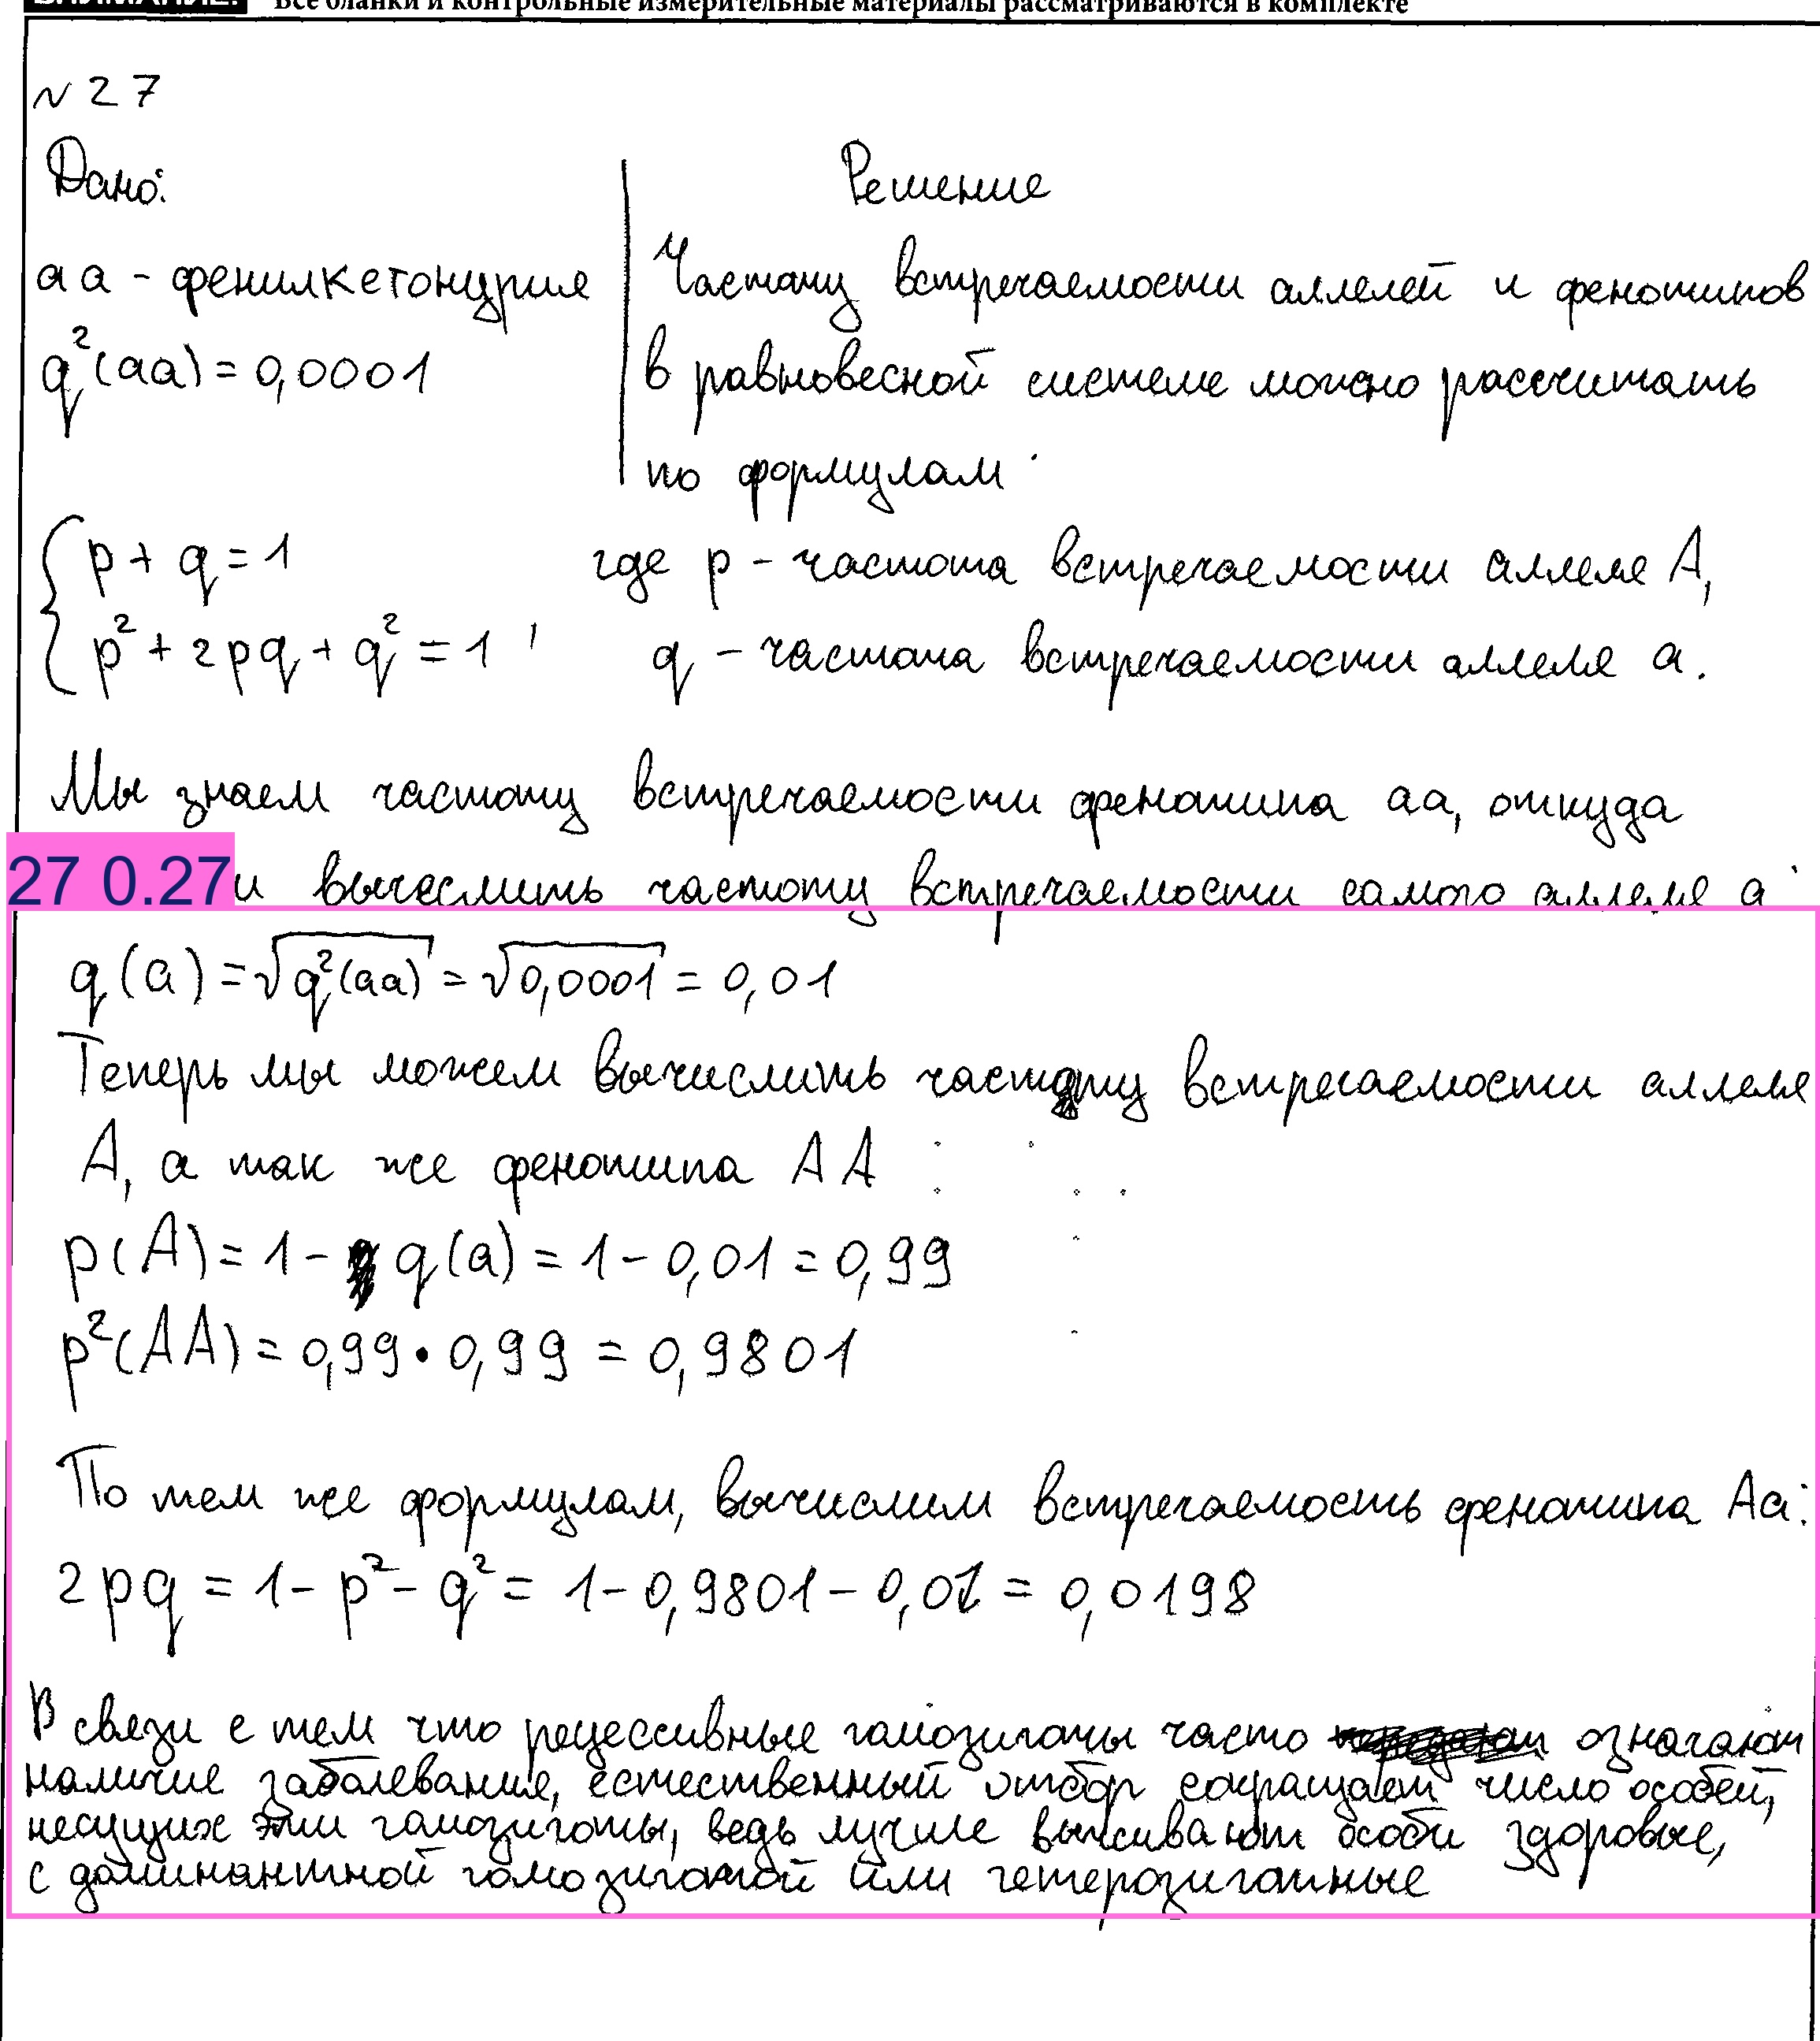 Все бланки и контрольные измерительные материалы рассматриваются в комплекте
№ 27
Дано:
Решение
аа - фенилкетонурия
Частоту встречаемости аллелей и фенотипов
q²(аа) = 0,0001
в равновесной системе можно рассчитать
по формулам
p + q = 1
где p - частота встречаемости аллеля А,
p² + 2pq + q² = 1 ,
q - частота встречаемости аллеля а.
Мы знаем частоту встречаемости фенотипа аа, откуда
27 0.27
и вычеслить частоту встречаемости самого аллеля а
q(а) = √q²(аа) = √0,0001 = 0,01
Теперь мы можем вычислить частоту встречаемости аллеля
А, а так же фенотипа АА :
p(А) = 1 - q(а) = 1 - 0,01 = 0,99
p²(АА) = 0,99 · 0,99 = 0,9801
По тем же формулам, вычислим встречаемость фенотипа Аа:
2pq = 1 - p² - q² = 1 - 0,9801 - 0,01 = 0,0198
В связи с тем что рецессивные гомозиготы часто означают
наличие заболевания, естественный отбор сокращает число особей,
несущих эти гомозиготы, ведь лучше выживают особи здоровые,
с доминантной гомозиготой или гетерозиготные